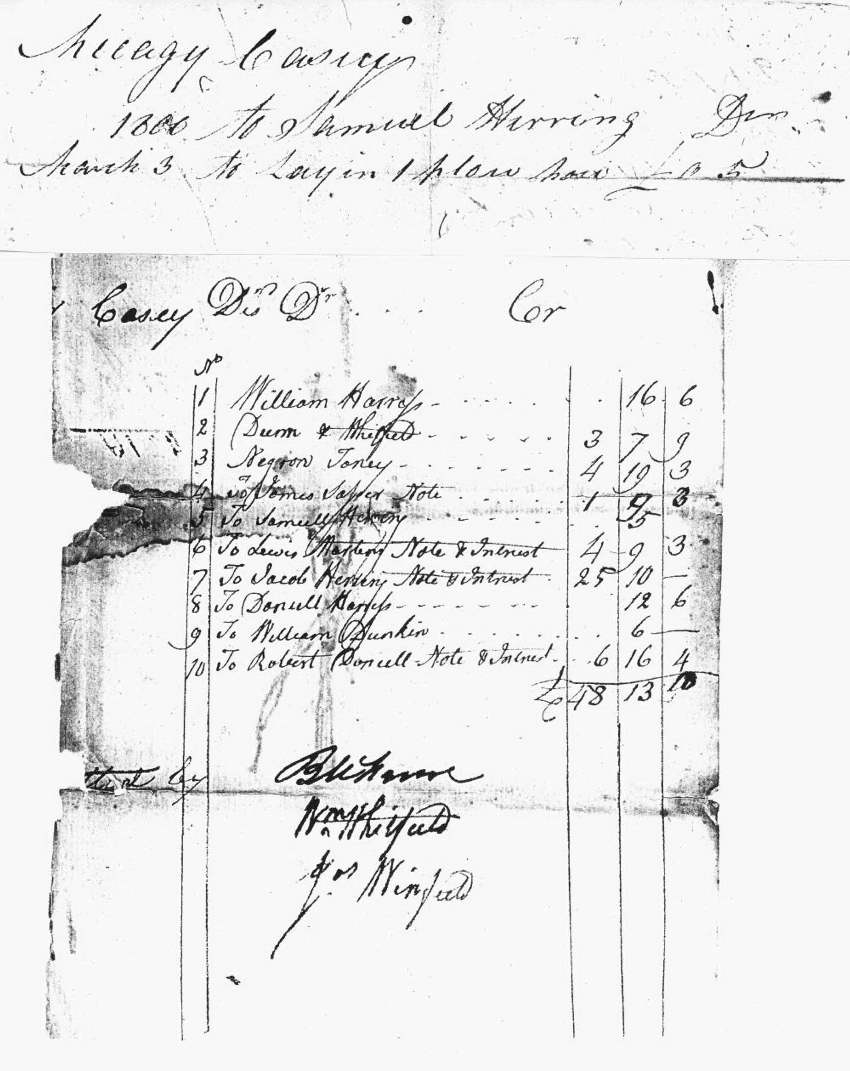 Micagy Casey
1800 to Samuel Herring Dr
March 3 to Laying 1 plow hoe £ 0 5
Casey Decd Dr . . . . Cr
No
1 William Harress 16 6
2 Dunn & Whitfield 3 7 9
3 Negron Toney 4 19 3
4 To James Sasser Note 1 9 3
5 To Samuell Herron 5
6 To Lewis Martins Note & Intrest 4 9 3
7 To Jacob Herring Note & Intrest 25 10 —
8 To Daniell Harress 12 6
9 To William Dunkin 6 —
10 To Robert Doneell Note & Intrest 6 16 4
£ 48 13 10
by
Wm Whitfield
Jos Winfield